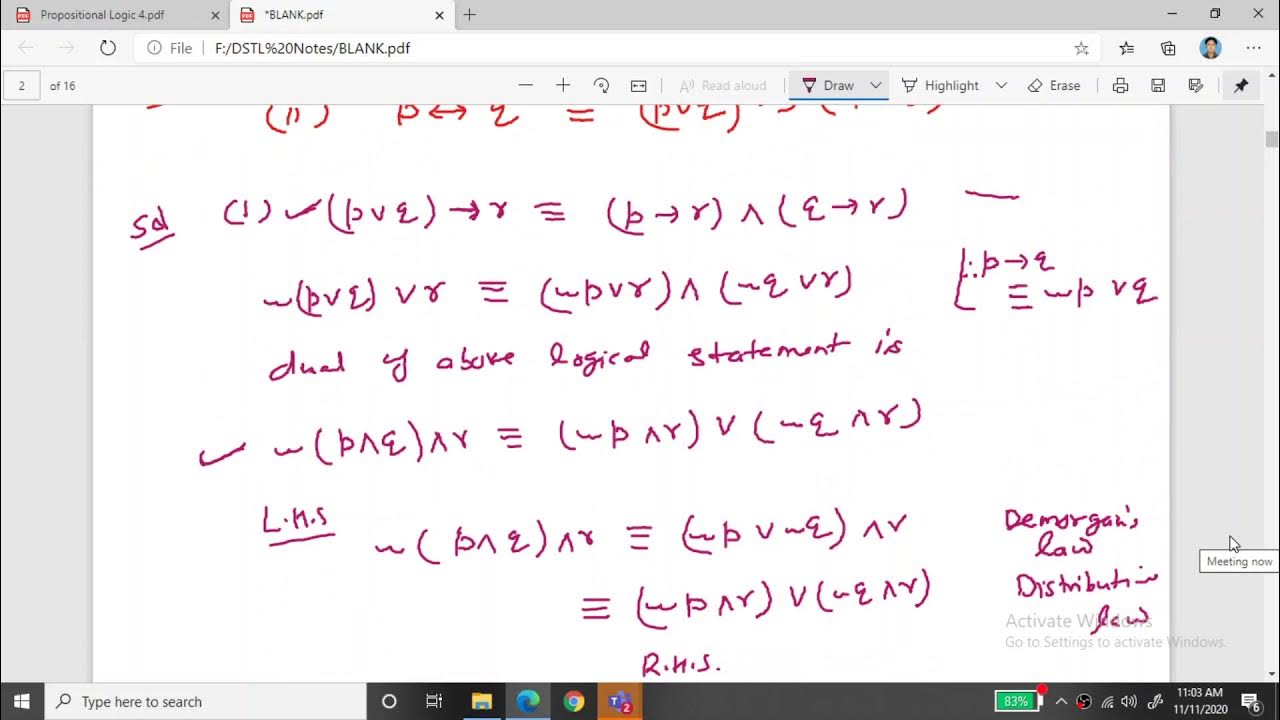 Propositional Logic 4.pdf
*BLANK.pdf
File F:/DSTL%20Notes/BLANK.pdf
2 of 16
Read aloud
Draw
Highlight
Erase
(ii) p ↔ q ≡ (p∨q)
Sol (1) ✓ (p∨q) → r ≡ (p → r) ∧ (q → r)
~(p∨q) ∨ r ≡ (~p∨r) ∧ (~q ∨r)
∵ p → q
≡ ~p ∨q
dual of above logical statement is
✓ ~(p∧q)∧r ≡ (~p ∧r) ∨ (~q ∧r)
L.H.S ~(p∧q)∧r ≡ (~p ∨ ~q) ∧r
Demorgan's
law
≡ (~p ∧r) ∨ (~q ∧r)
Distributive
law
R.H.S.
Meeting now
Activate Windows
Go to Settings to activate Windows.
Type here to search
83%
11:03 AM
11/11/2020
2
6